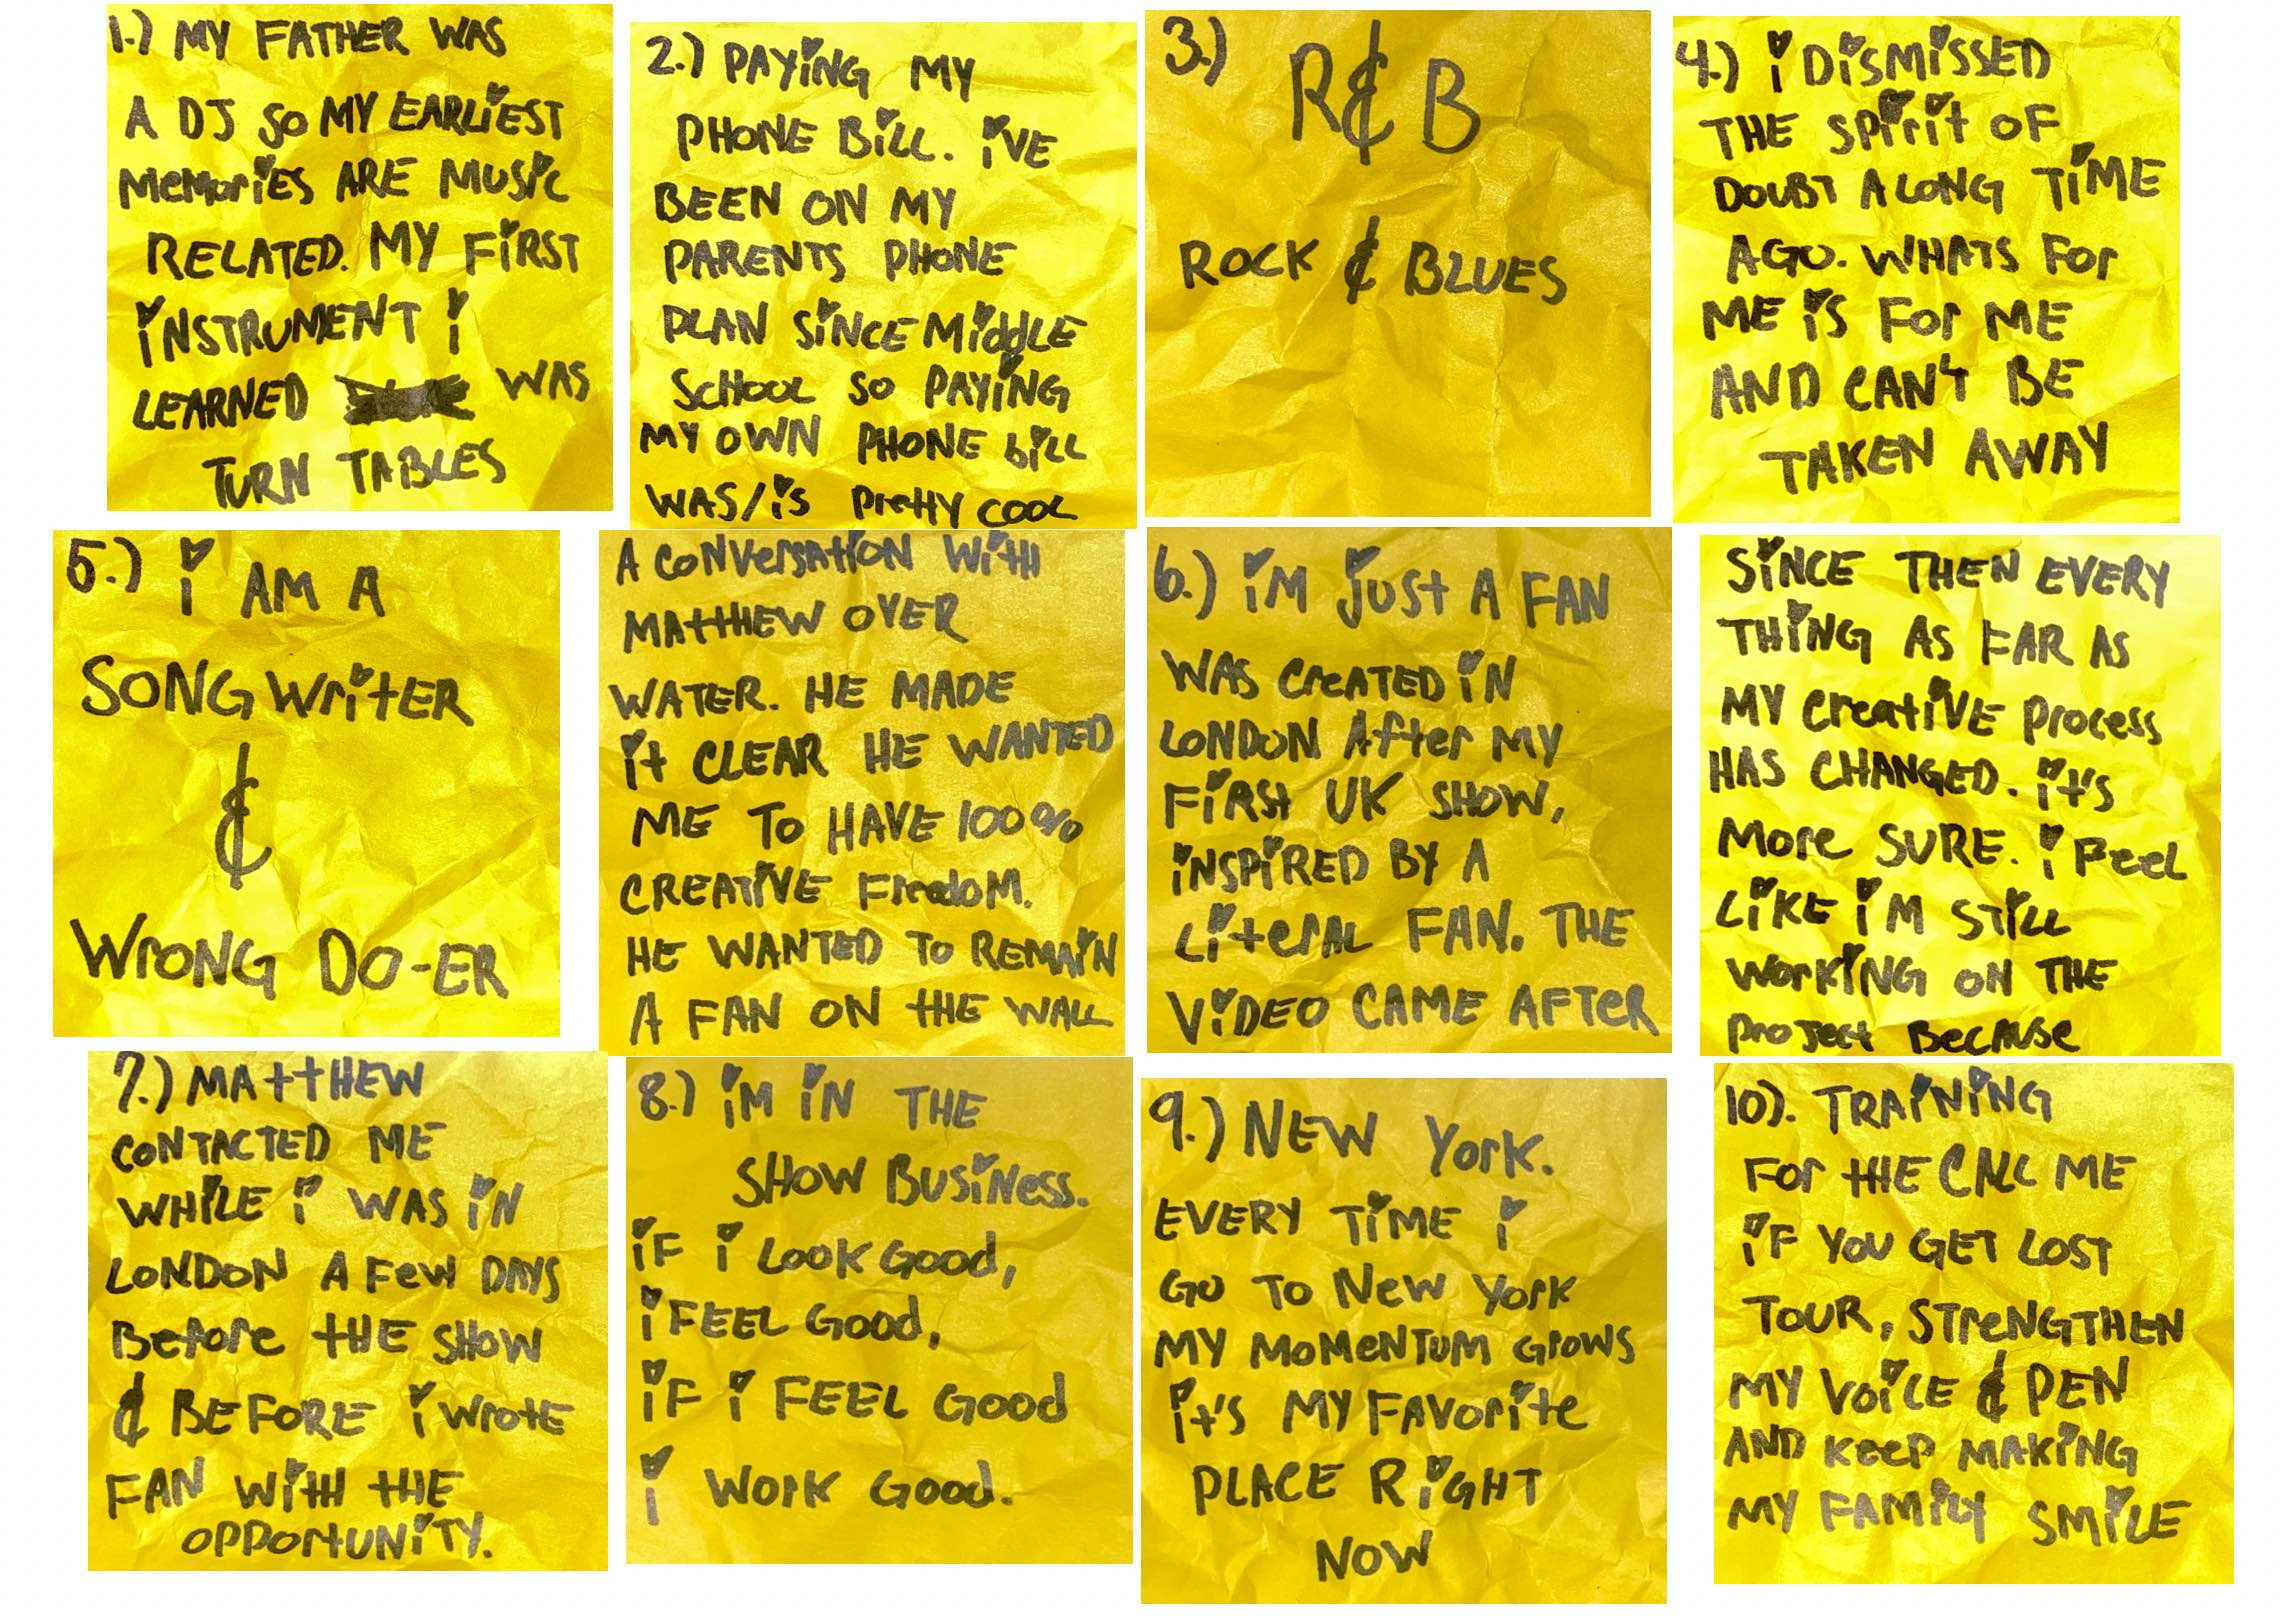 1.) MY FATHER WAS
A DJ SO MY EARLiEST
MEMORiES ARE MUSiC
RELATED. MY FiRST
iNSTRUMENT i
LEARNED WAS
TURN TABLES
2.) PAYiNG MY
PHONE BiLL. i'VE
BEEN ON MY
PARENTS PHONE
PLAN SiNCE MiddLE
SCHOOL SO PAYiNG
MY OWN PHONE biLL
WAS/iS PrettY COOL
3.) R & B
ROCK & BLUES
4.) i DiSMiSSED
THE SPirit OF
DOUBT A LONG TiME
AGO. WHATS FOr
ME iS FOr ME
AND CAN't BE
TAKEN AWAY
5.) i AM A
SONG WritER
&
WrONG DO-ER
A CONVersAtiON With
MAttHEW OVER
WATER. HE MADE
it CLEAR HE WANTED
ME TO HAVE 100%
CREATiVE FreedoM.
HE WANTED TO REMAiN
A FAN ON tHE WALL
6.) iM JUSt A FAN
WAS CreATED iN
LONDON After MY
FiRSt UK SHOW,
iNSPiRED BY A
LiterAL FAN. THE
ViDEO CAME AFTER
SiNCE THEN EVERY
THiNG AS FAR AS
MY CreatiVE Process
HAS CHANGED. it's
More SURE. i Feel
LiKE i'M STiLL
WorKiNG ON THE
ProJect BecAUse
7.) MAttHEW
CONTACTED ME
WHiLE i WAS iN
LONDON A FeW DAYS
Before tHE SHOW
& BEFORE i Wrote
FAN WitH tHE
OPPOrtUNiTY.
8.) iM iN THE
SHOW BUSiNess.
iF i LooK Good,
i FEEL Good,
iF i FEEL Good
i WOrK Good.
9.) NEW YorK.
EVERY TiME i
GO TO NeW YorK
MY MOMeNTUM GroWS
it's MY FAVorite
PLACE RiGHT
NOW
10). TRAiNiNG
For tHE CALL ME
iF YOU GET LOST
TOUR, STReNGTHEN
MY VOiCE & PEN
AND KeeP MAKiNG
MY FAMiLY SMiLE